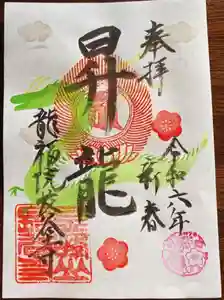 奉拝
令和六年
新春
昇龍
龍福院安養寺